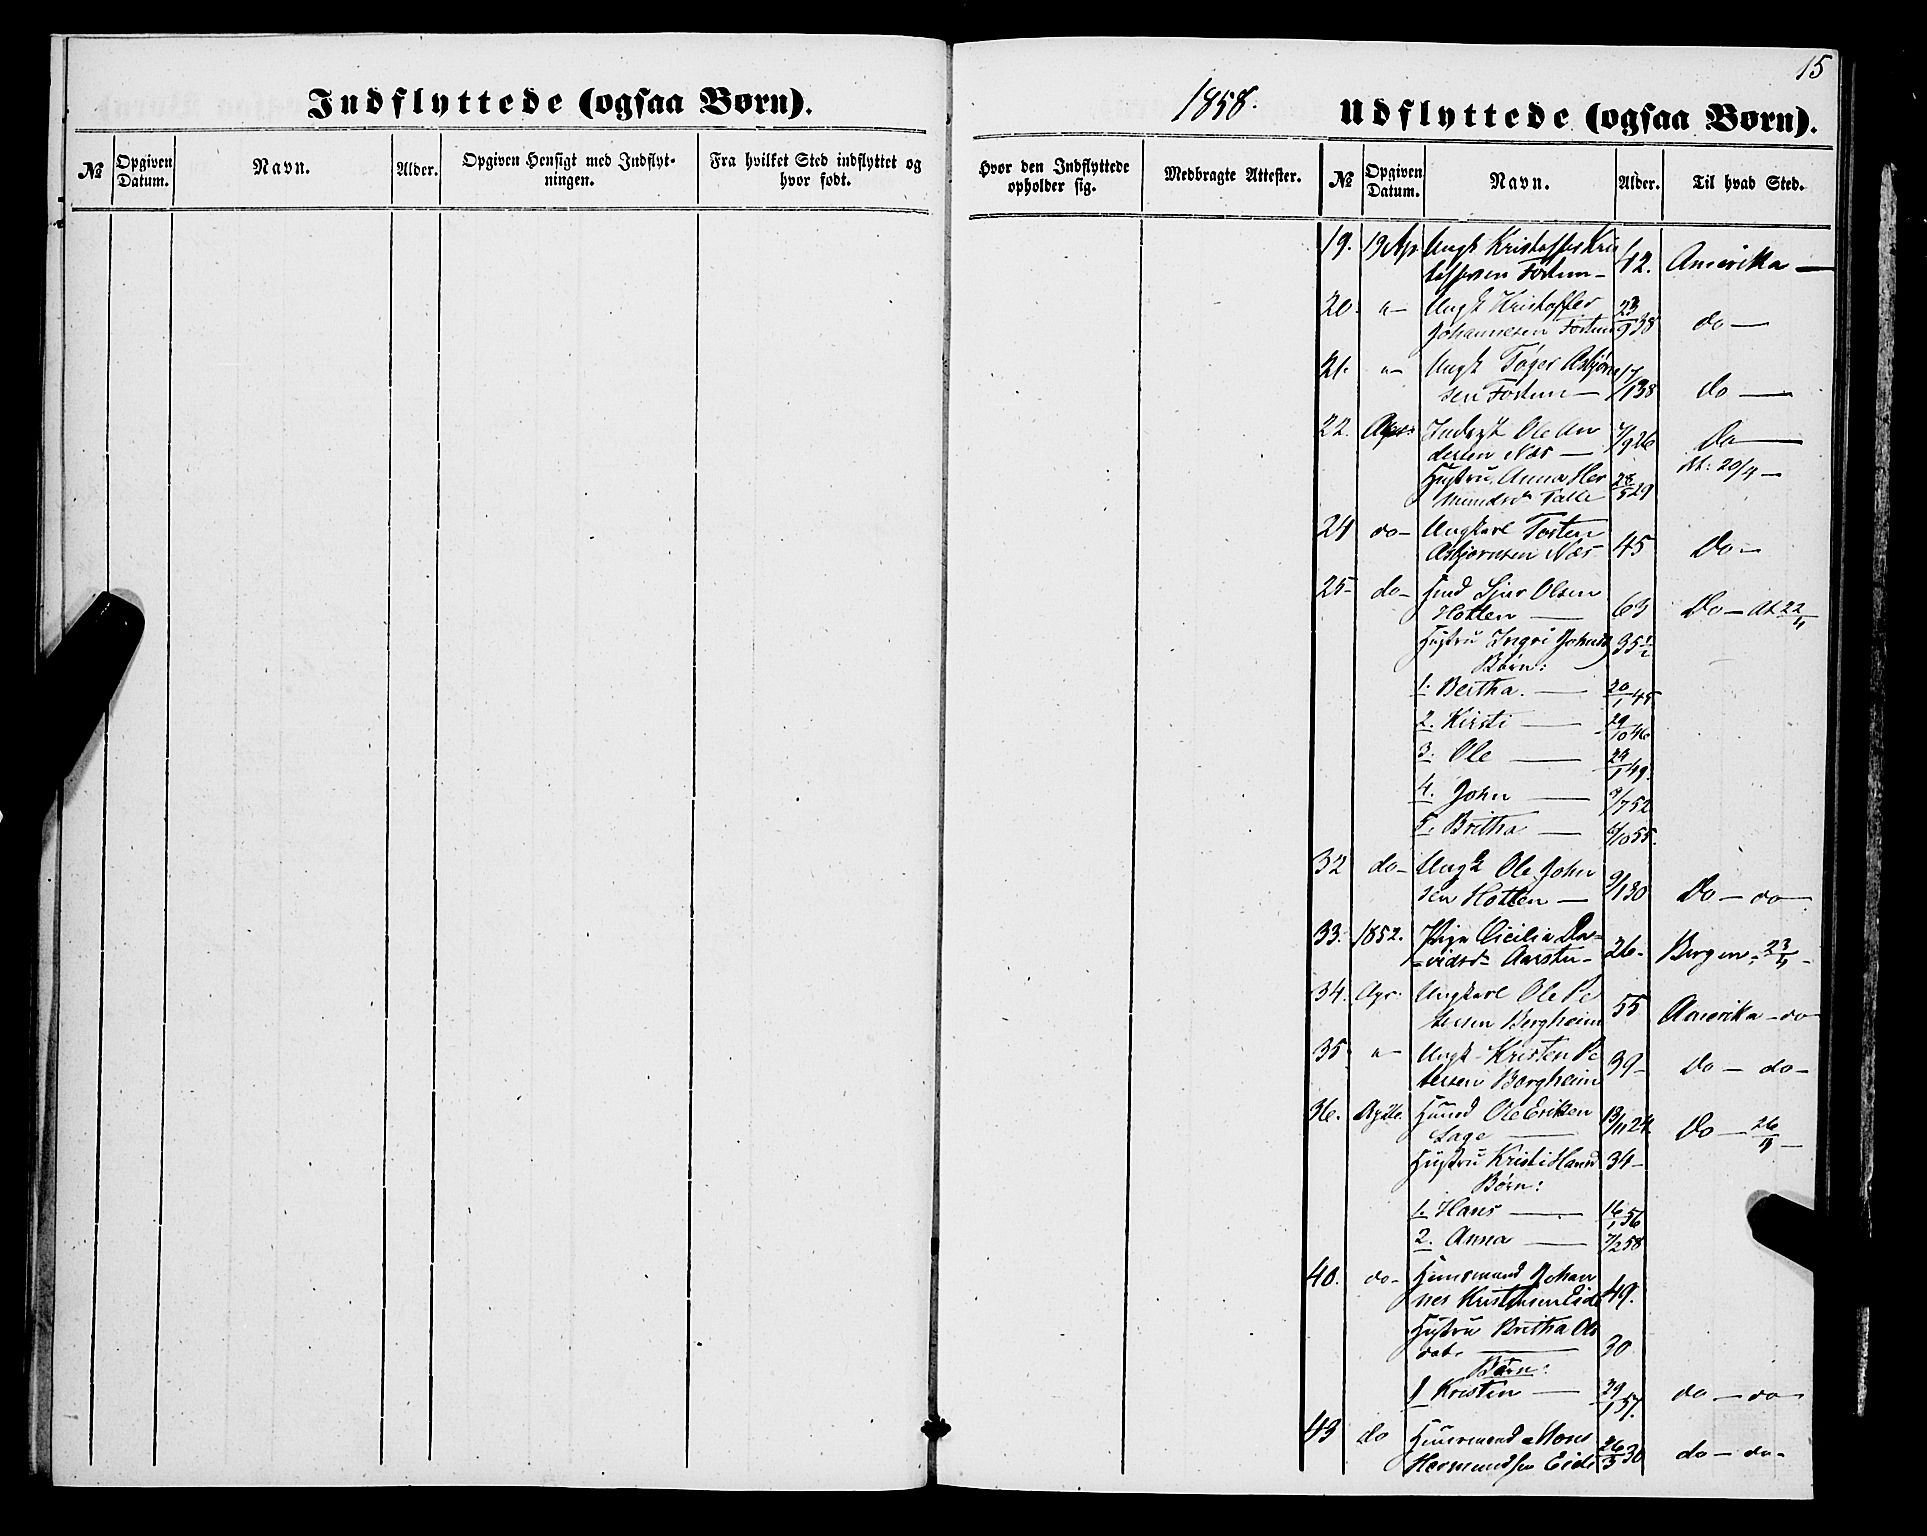 15
Indflyttede (ogsaa Børn).
1858.
Udflyttede (ogsaa Børn).
№ Opgiven Datum. Navn. Alder. Opgiven Hensigt med Indflytningen. Fra hvilket Sted indflyttet og hvor født.
Hvor den Indflyttede opholder sig. Medbragte Attester. № Opgiven Datum. Navn. Alder. Til hvad Sted.
19. 19 Apr Ungk Kristoffer Kris
toffersen Fortun — 42. Amerika —
20. "— Ungk Kristoffer 23
Johannesen Fortun /9 38 do —
21. "— Ungk Tøger Asbjørn 17
sen Fortun — /1 38 do —
22. Apr: Inderst Ole An
dersen Næs — 4/9 26 Do —
Hustru Anna Her At: 20/4 —
mundsdr 28/5 29
24 do— Ungkarl Torsten
Asbjørnsen Næs 45 Do —
25— do— Husmd Sjur Olsen
Hotten — 63 Do — At 22/4
Hustru Ingri Johnsd 35 1/2
Børn:
1. Bertha. — 20/1 45
2. Kirsti — 29/10 46
3. Ole — 24/1 49.
4. John — 9/7 52
5. Britha — 6/10 55.
32 do— Ungk Ole John
sen Hotten — 9/1 30 Do — do —
33. 1852. Pige Cicilia Da=
=vidsdr Aarsten — 26— Bergen. 23/4 —
34. Apr: Ungkarl Ole Pe
tersen Bergheim 55 Amerika — do
35. "— Ungk Kristen Pe
tersen Bergheim 39— Do — do—
36. April Husmd Ole Eriksen
Lage — 13/11 24. Do — 26/4 —
Hustru Kristi Hansd 34—
Børn:
1. Hans — 16/1 56
2. Anna — 7/2 58
40. do— Husmand Johan
nes Kristensen Eide 49.
Hustru Britha Ols
dat. — 30
Børn:
1 Kristen — 29/1 57. do — do —
43 do Husmand Mons
Hermundsen Eide 26/5 30 do — do—